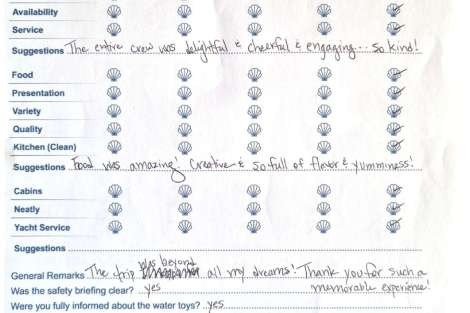 Availability
Service
Suggestions The entire crew was delightful & cheerful & engaging... so kind!
Food
Presentation
Variety
Quality
Kitchen (Clean)
Suggestions Food was amazing! Creative & so full of flavor & yumminess!
Cabins
Neatly
Yacht Service
Suggestions
was beyond
General Remarks The trip all my dreams! Thank you for such a
Was the safety briefing clear? yes memorable experience!
Were you fully informed about the water toys? yes